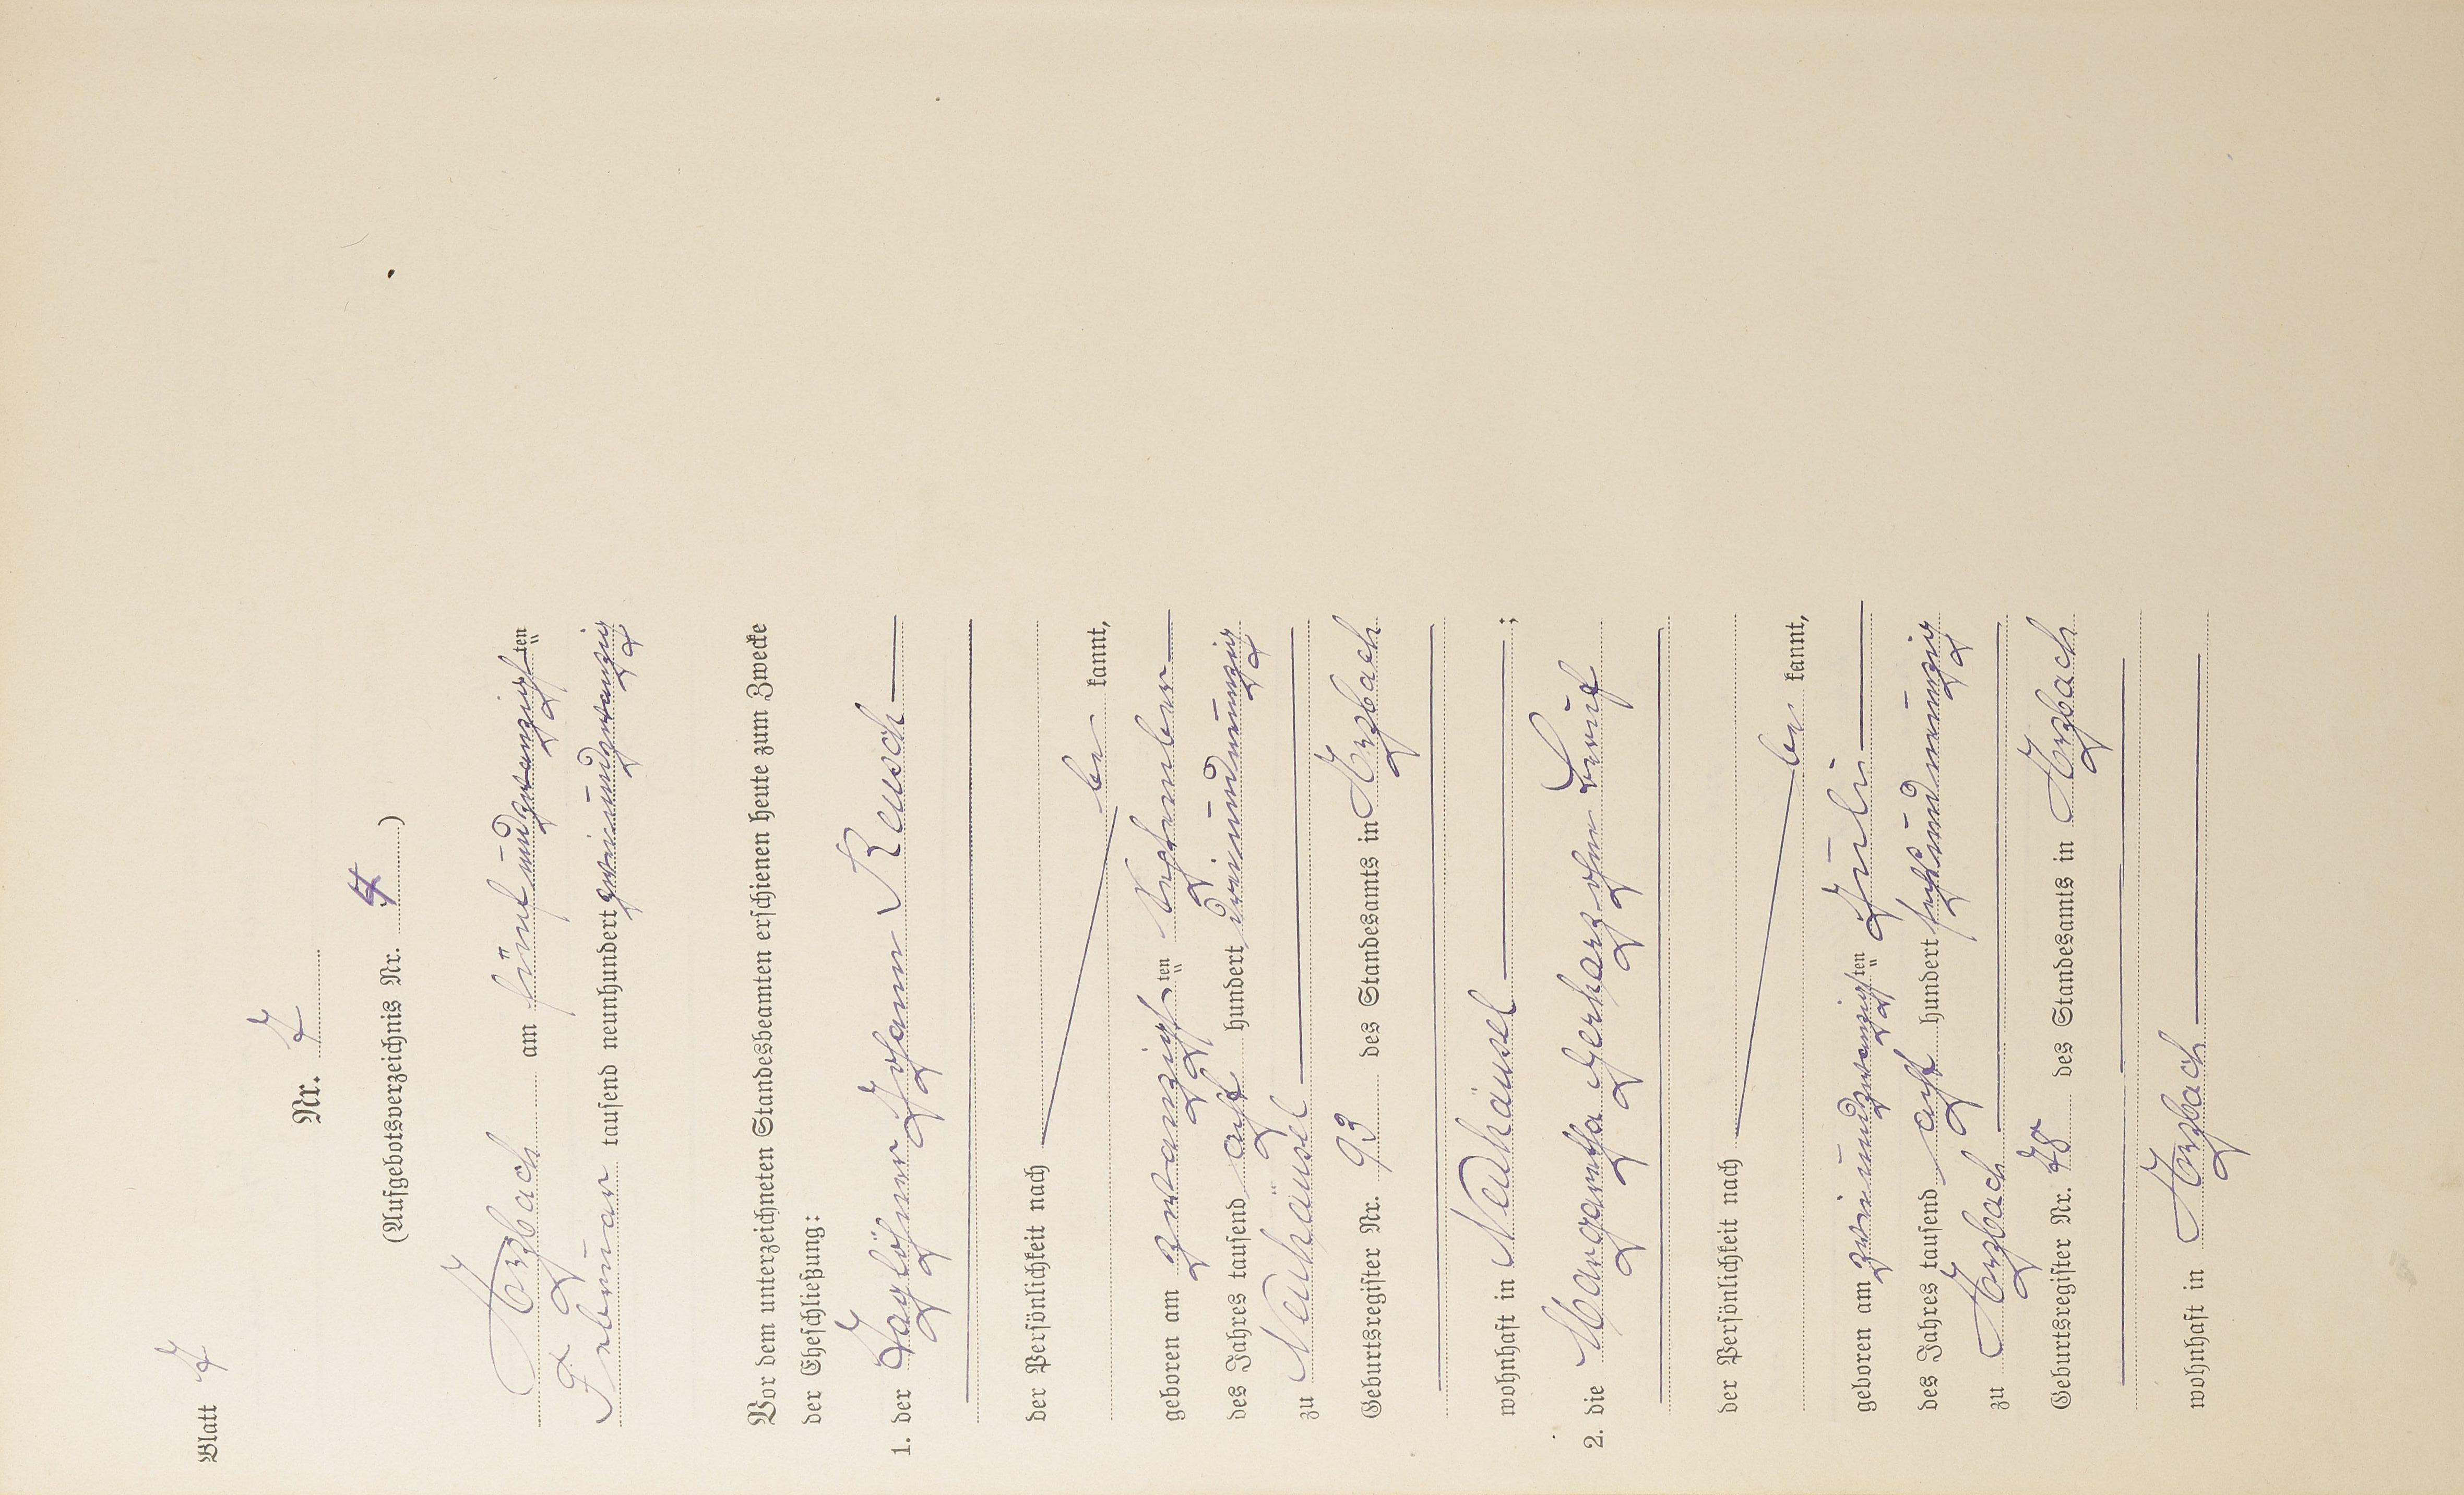 Blatt 7
Nr. 7
(Aufgebotsverzeichnis Nr. 4)
Arzbach am fünfundzwanzigsten
Februar tausend neunhundert zweiundzwanzig
Vor dem unterzeichneten Standesbeamten erschienen heute zum Zwecke
der Eheschließung:
1. der Taglöhner Johann Reusch
der Persönlichkeit nach
be kannt,
geboren am zwanzigsten September
des Jahres tausend acht hundert dreiundneunzig
zu Neuhäusel
Geburtsregister Nr. 93 des Standesamts in Arzbach
wohnhaft in Neuhäusel ;
2. die Margaretha Gerharz ohne Beruf
der Persönlichkeit nach
be kannt,
geboren am zweiundzwanzigsten Juli
des Jahres tausend acht hundert sechsundneunzig
zu Arzbach
Geburtsregister Nr. 78 des Standesamts in Arzbach
wohnhaft in Arzbach